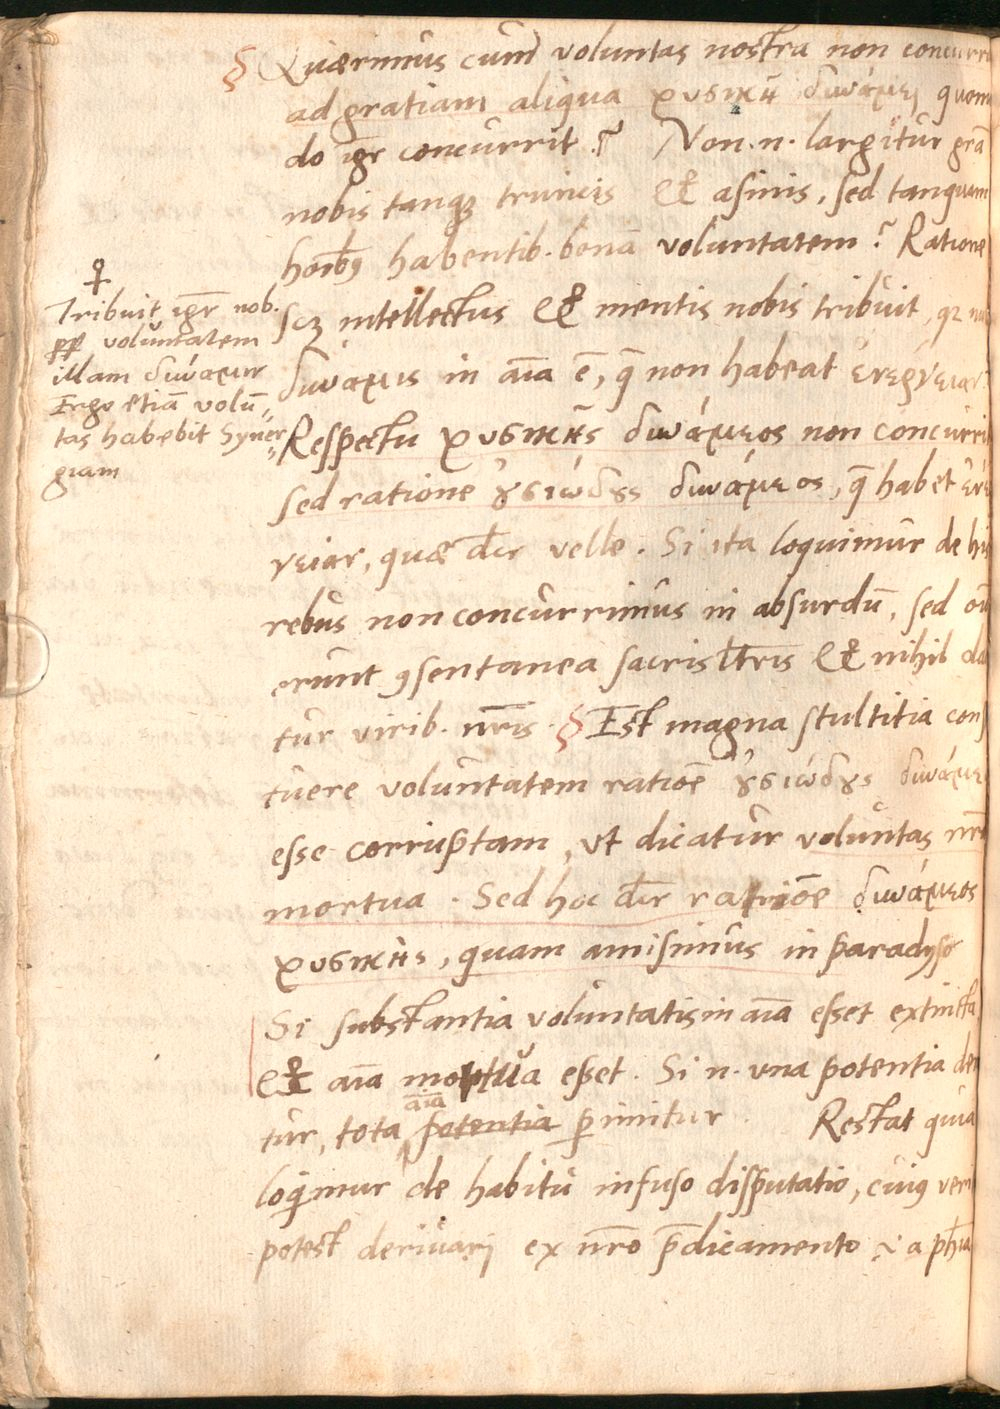 § Quærimus cum voluntas nostra non concurr
ad gratiam aliqua φυσικῇ δυνάμει quom
do igr concurrit? Non .n. largitur grã
nobis tanq̃ truncis et asinis, sed tanquam
hoĩbꝰ habentib. bonã voluntatem? Ratione
scz intellectus et mentis nobis tribuit, qz
δυναμις in aĩa ẽ, q̃ non habeat ἐνέργειαν?
Respectu φυσικῆς δυνάμεος non concurri
sed ratione ȣ̓σιώδȣς δυνάμεος, q̃ habet ἐνέρ
γειαν, quæ dr̃ velle. Si ita loquimur de his
rebus non concurrimus in absurdũ, sed oĩa
erunt ꝯsentanea sacris lr̃is et nihil da
tur virib. nr̃is. § Est magna stultitia cons
tuere voluntatem ratiõe ȣ̓σιώδȣς δυνάμε
esse corruptam, ut dicatur voluntas nr̃a
mortua. Sed hoc dr̃ ratiõe δυνάμεος
φυσικῆς, quam amisimus in paradyso
Si substantia voluntatis in aĩa esset extincta
et aĩa mortua esset. Si .n. una potentia de
tur, tota aĩa potentia perimitur. Restat quia
loqimur de habitu infuso disputatio, cuiꝰ veri
potest derivari ex nr̃o p̃dicamento a phĩa
Tribuit igr nob.
ꝓpꝑ voluntatem
illam δυνάμιν
Ergo etiã volũ-
tas habebit Syner-
giam